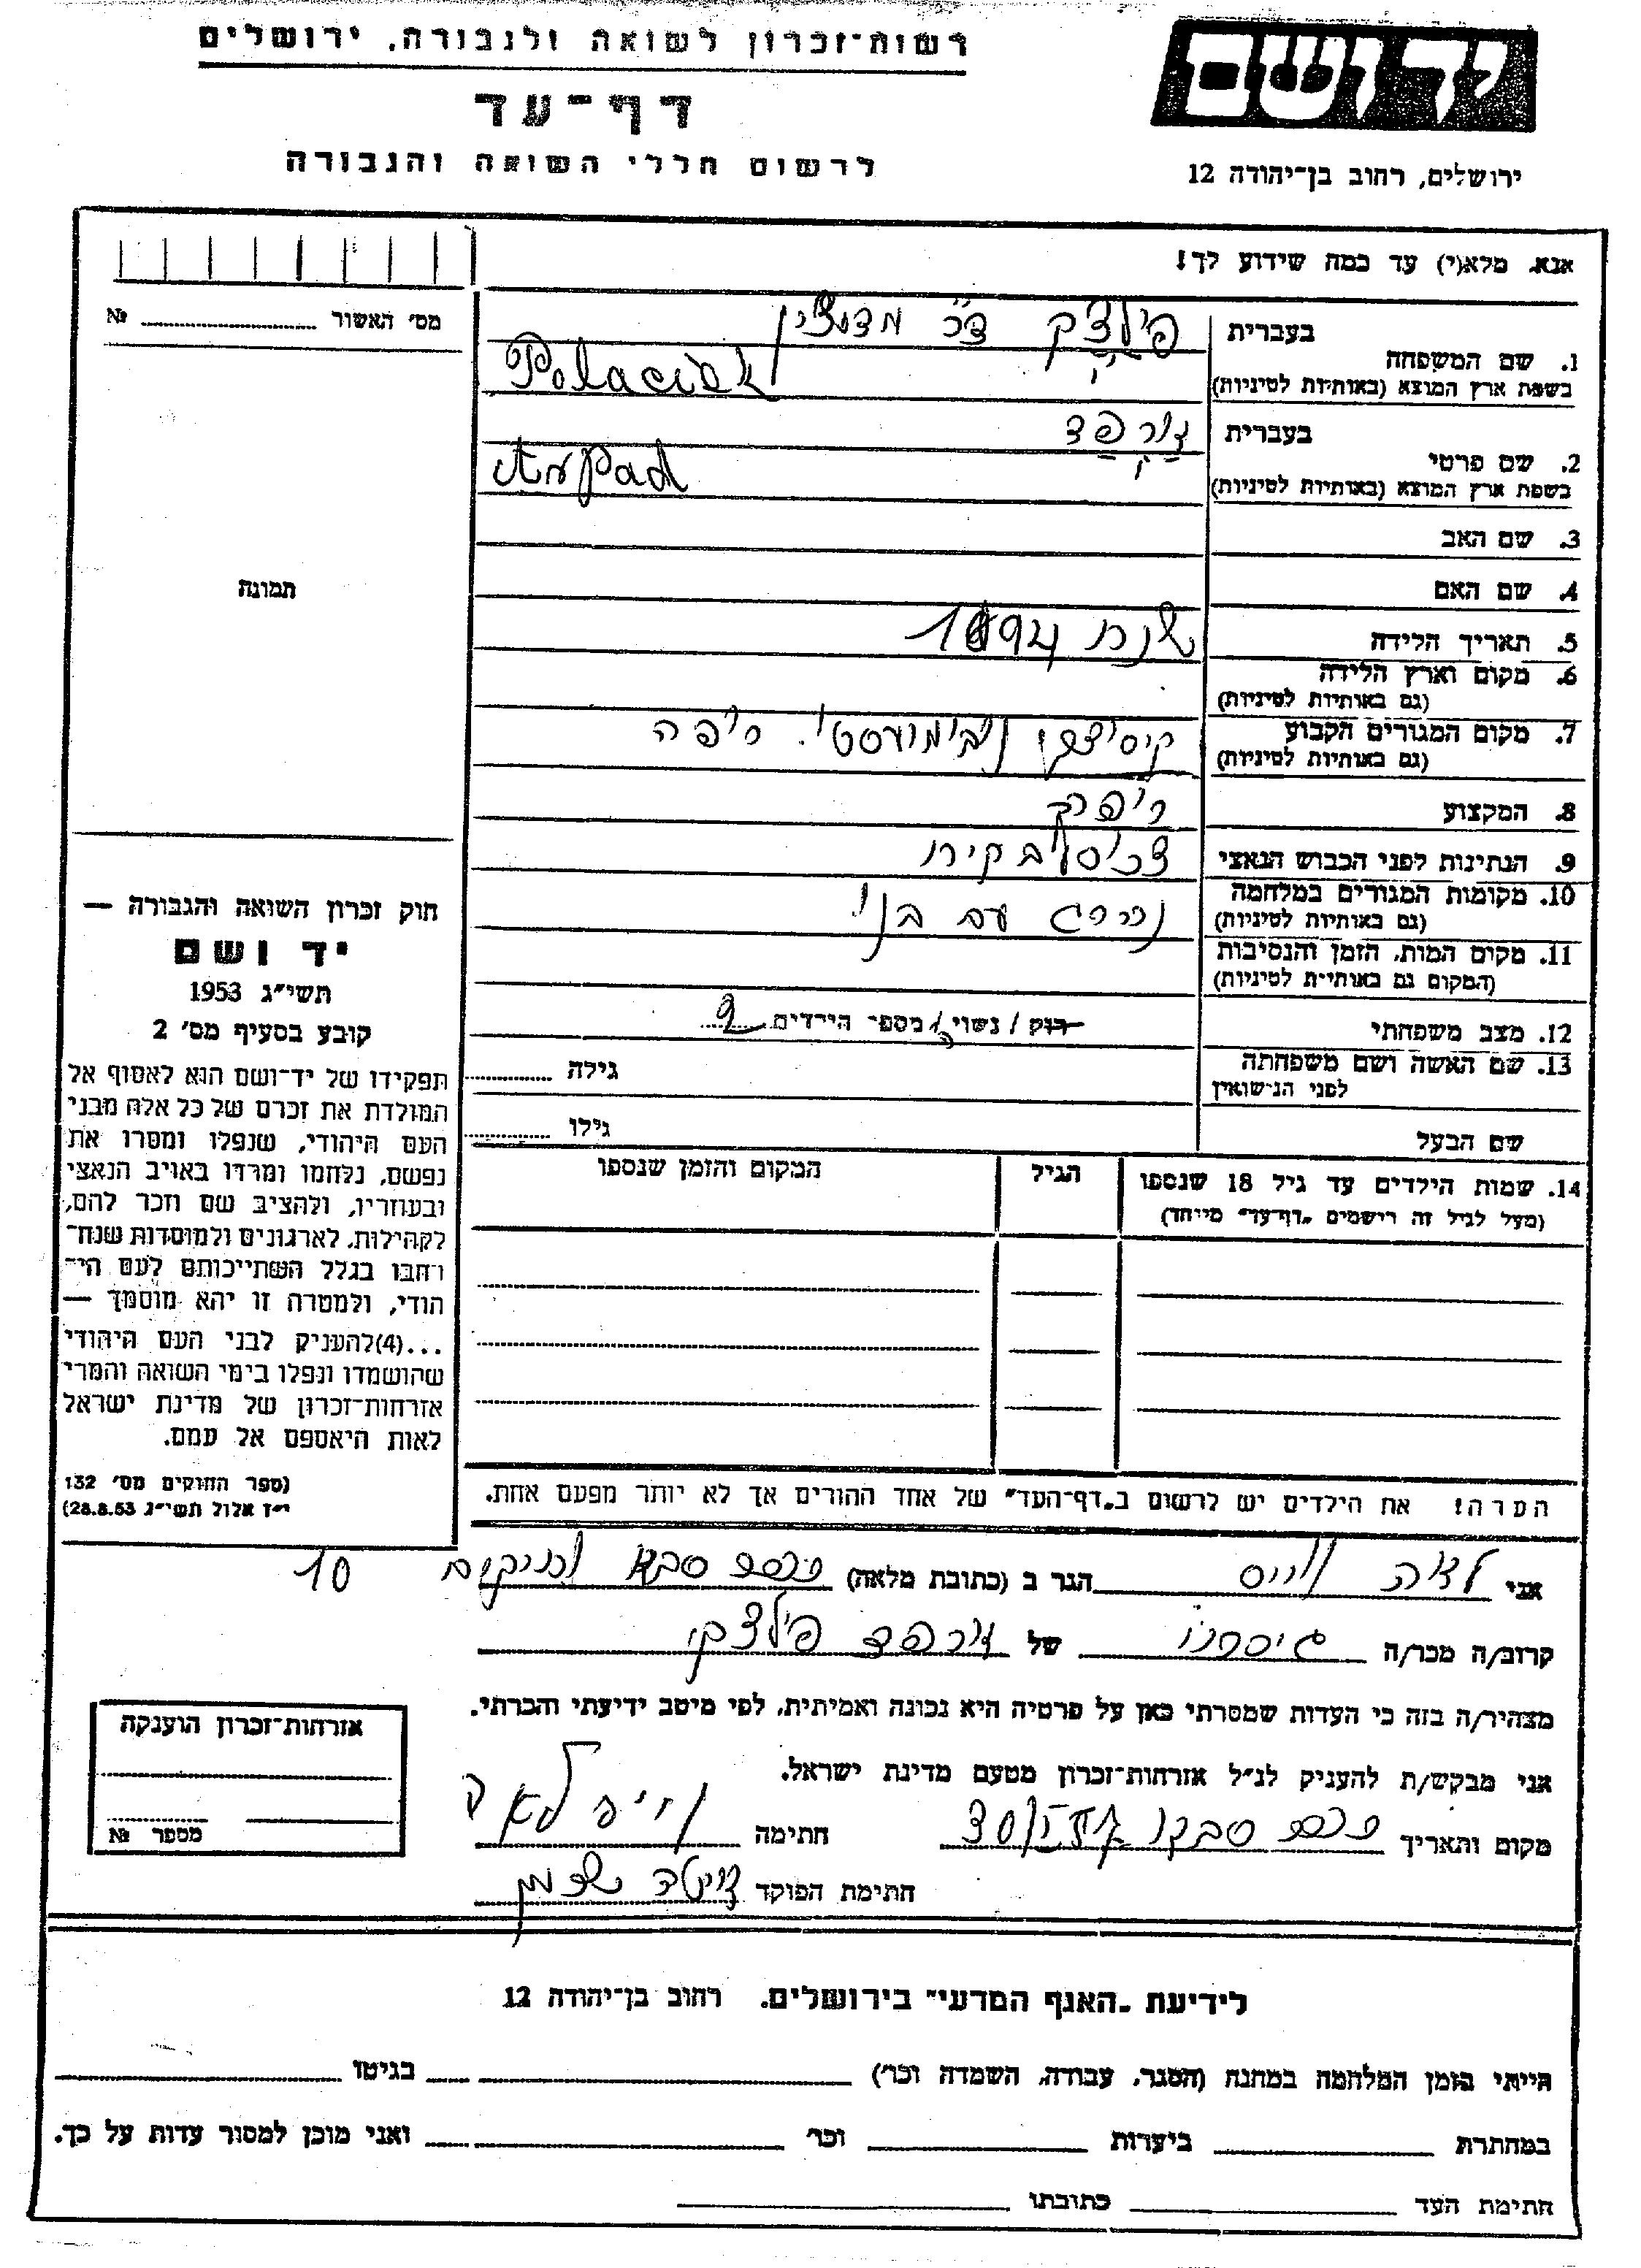 רשות־זכרון לשואה ולגבורה, ירושלים
דף־עד
לרשום חללי השואה והגבורה
יד ושם
ירושלים, רחוב בן־יהודה 12
אנא, מלא(י) עד כמה שידוע לך!
מס׳ האשור № 
תמונה
1. שם המשפחה
בעברית
בשפת ארץ המוצא (באותיות לטיניות)
Polaciek
2. שם פרטי
בעברית
ארפד
בשפת ארץ המוצא (באותיות לטיניות)
Arpad
3. שם האב
4. שם האם
5. תאריך הלידה
שנת 1894
6. מקום וארץ הלידה
(גם באותיות לטיניות)
7. מקום המגורים הקבוע
(גם באותיות לטיניות)
8. המקצוע
9. הנתינות לפני הכבוש הנאצי
10. מקומות המגורים במלחמה
(גם באותיות לטיניות)
נהרג עם בנו
11. מקום המות, הזמן והנסיבות
(המקום גם באותיות לטיניות)
12. מצב משפחתי
רוק / נשוי / מספר הילדים 2
13. שם האשה ושם משפחתה
לפני הנישואין
גילה
שם הבעל
גילו
14. שמות הילדים עד גיל 18 שנספו
(מעל לגיל זה רישמים „דף־עד״ מייחד)
הגיל
המקום והזמן שנספו
חוק זכרון השואה והגבורה —
יד ושם
תשי״ג 1953
קובע בסעיף מס׳ 2
תפקידו של יד־ושם הוא לאסוף אל
המולדת את זכרם של כל אלה מבני
העם היהודי, שנפלו ומסרו את
נפשם, נלחמו ומרדו באויב הנאצי
ובעוזריו, ולהציב שם וזכר להם,
לקהילות, לארגונים ולמוסדות שנח־
רחבו בגלל השתייכותם לעם הי־
הודי, ולמטרה זו יהא מוסמך —
...(4)להעניק לבני העם היהודי
שהושמדו ונפלו בימי השואה והמרי
אזרחות־זכרון של מדינת ישראל
לאות היאספם אל עמם.
(ספר החוקים מס׳ 132
י״ז אלול תשי״ג 28.8.53)
הערה! את הילדים יש לרשום ב„דף־העד״ של אחד ההורים אך לא יותר מפעם אחת.
אני לאה וייס הגר ב (כתובת מלאה) פרדס סבא 10
קרוב/ה מכר/ה גיסתו של ארפד
מצהיר/ה בזה כי העדות שמסרתי כאן על פרטיה היא נכונה ואמיתית, לפי מיטב ידיעתי והכרתי.
אני מבקש/ת להעניק לנ״ל אזרחות־זכרון מטעם מדינת ישראל.
מקום ותאריך חתימה וייס לאה
חתימת הפוקד
אזרחות־זכרון הוענקה
מספר №
לידיעת „האגף המדעי״ בירושלים, רחוב בן־יהודה 12
הייתי בזמן המלחמה במחנה (הסגר, עבודה, השמדה וכר׳) בגיטו
במחתרת ביערות וכר׳ ואני מוכן למסור עדות על כך.
חתימת העד כתובתו